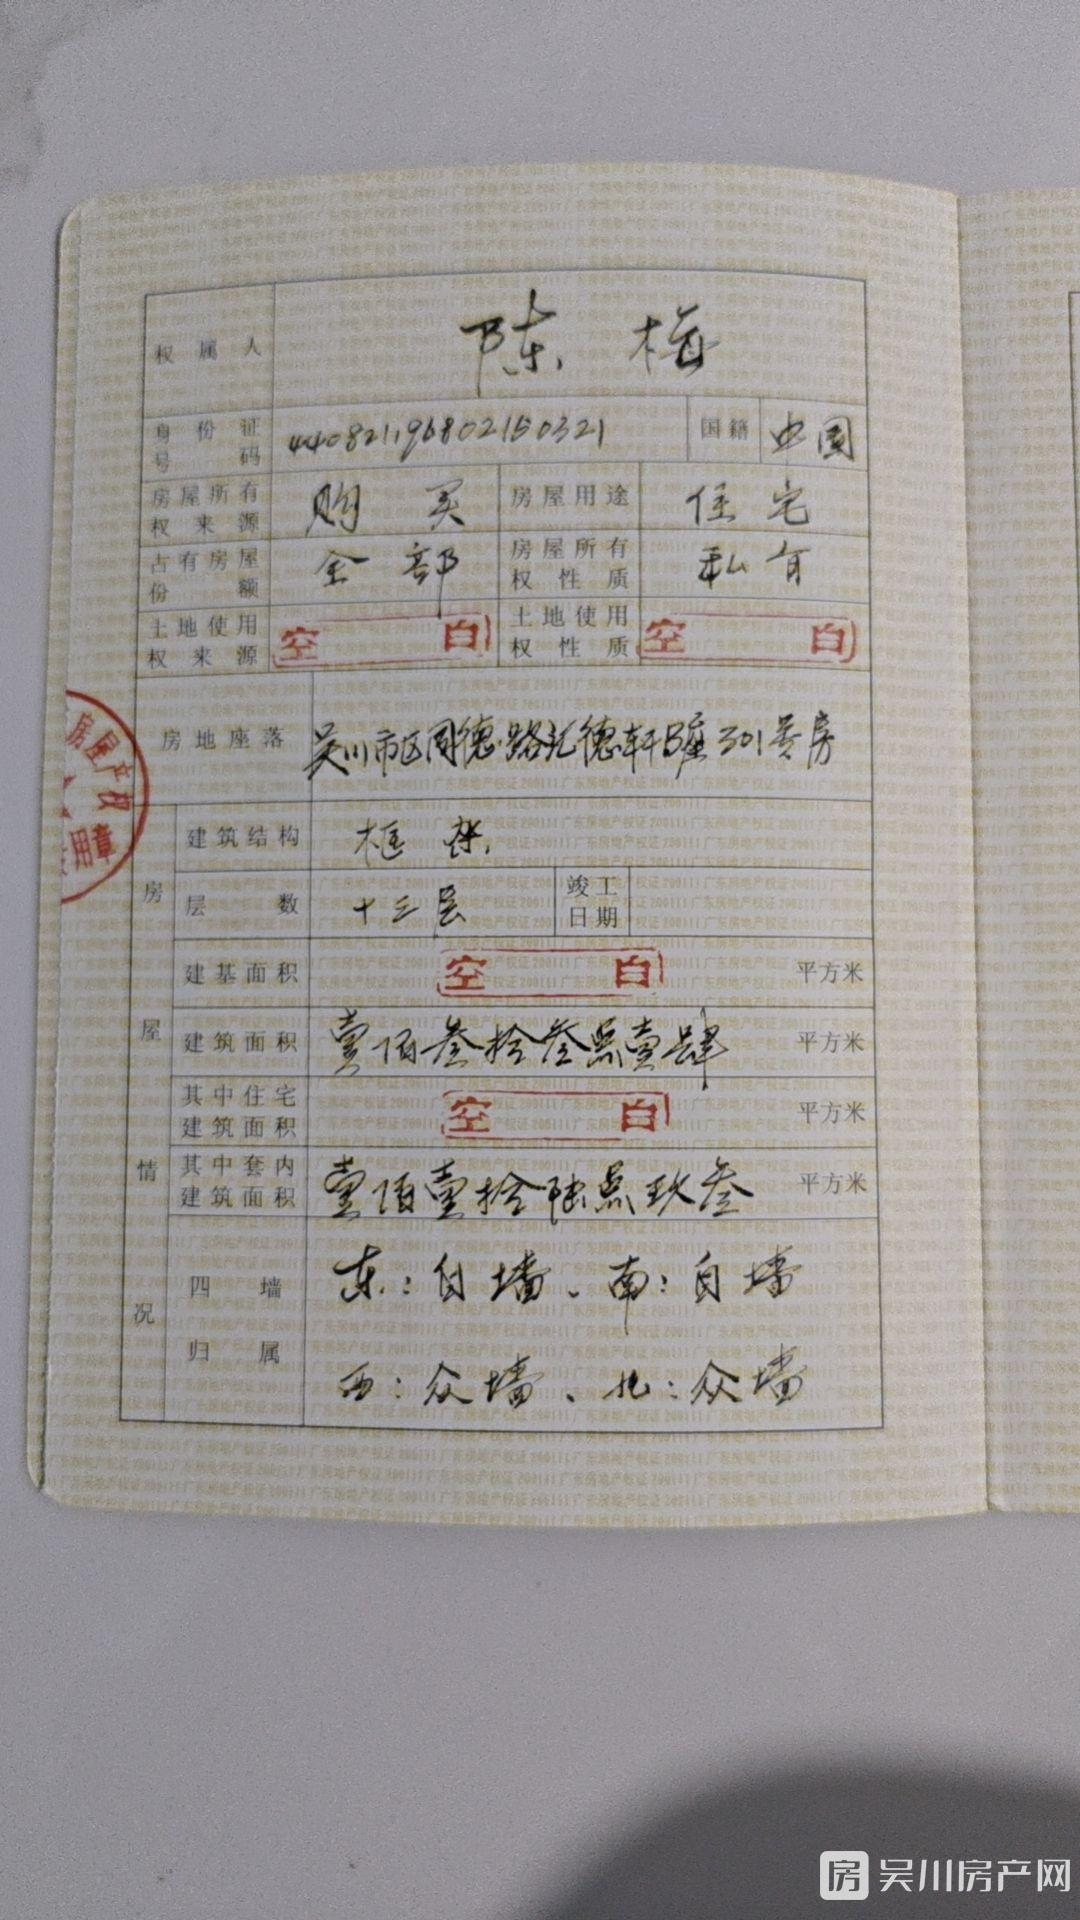 权属人 陈梅
身份证号码 440821196802150321 国籍 中国
房屋所有权来源 购买 房屋用途 住宅
占有房屋份额 全部 房屋所有权性质 私有
土地使用权来源 空白 土地使用权性质 空白
房地座落 吴川市区同德路汇德轩B座301号房
房屋情况
建筑结构 框架
层数 十三层 竣工日期
建基面积 空白 平方米
建筑面积 壹佰叁拾叁点壹肆 平方米
其中住宅建筑面积 空白 平方米
其中套内建筑面积 壹佰壹拾陆点玖叁 平方米
四墙归属 东:自墙、南:自墙
西:众墙、北:众墙
房屋产权
用章
房 吴川房产网